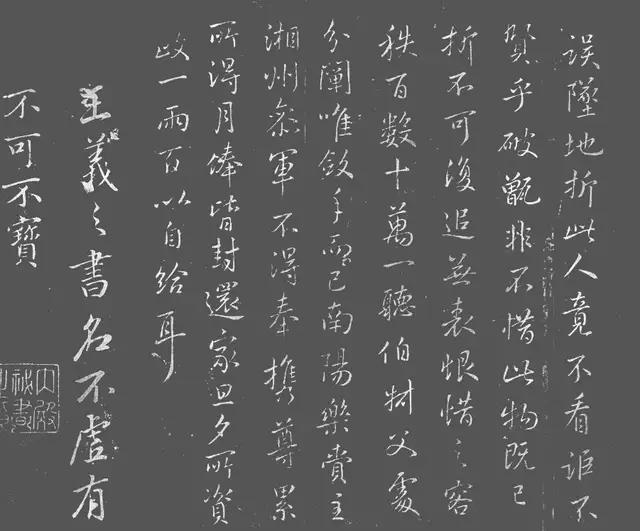 誤墜地折此人竟不看詎不
賢乎破甑非不惜此物既已
折不可復追無表恨惜之容
秩百數十萬一聽伯財父處
分闡唯斂手而已南陽樂賞主
湘州參軍不得奉攜尊累
所得月俸皆封還家旦夕所資
政一兩百以自給耳
王羲之書名不虛有
不可不寶
內殿秘書